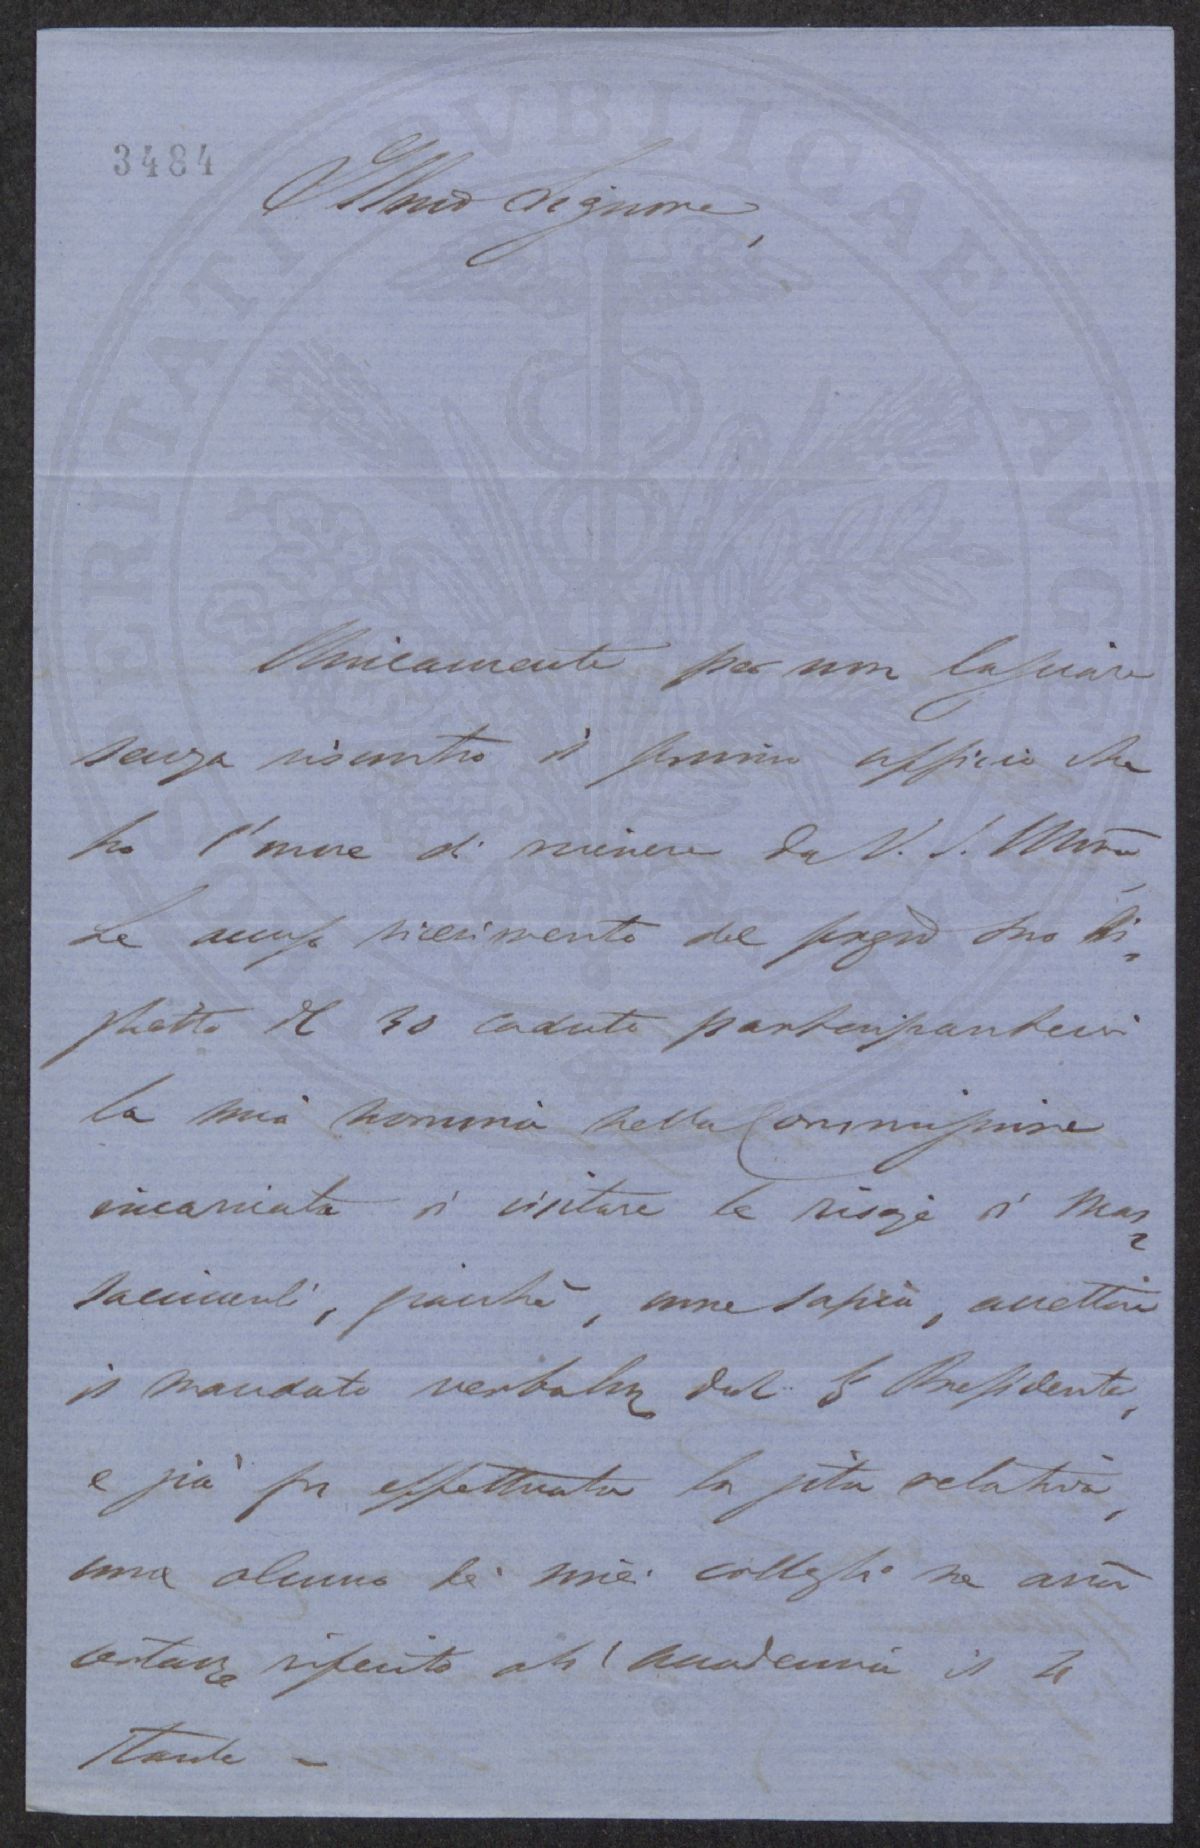 3484
Illmo Signore,
Unicamente per non lasciare
senza riscontro il primo uffficio che
ho l'onore di ricevere da V. S. Illma,
Le accuso ricevimento del pregto Suo Bi-
glietto il 30 caduto partecipantemi
la mia nomina nella Commissione
incaricata di visitare le risaje di Mas
saciuccoli, giacchè, come sapeva, accettai
il mandato verbale dal Sr Presidente,
e già fu effettuata la gita relativa,
come alcuno de' miei colleghi ne avrà
certamte riferito all'Accademia il re
stante –
PROSPERITATI PVBLICAE AVGENDAE